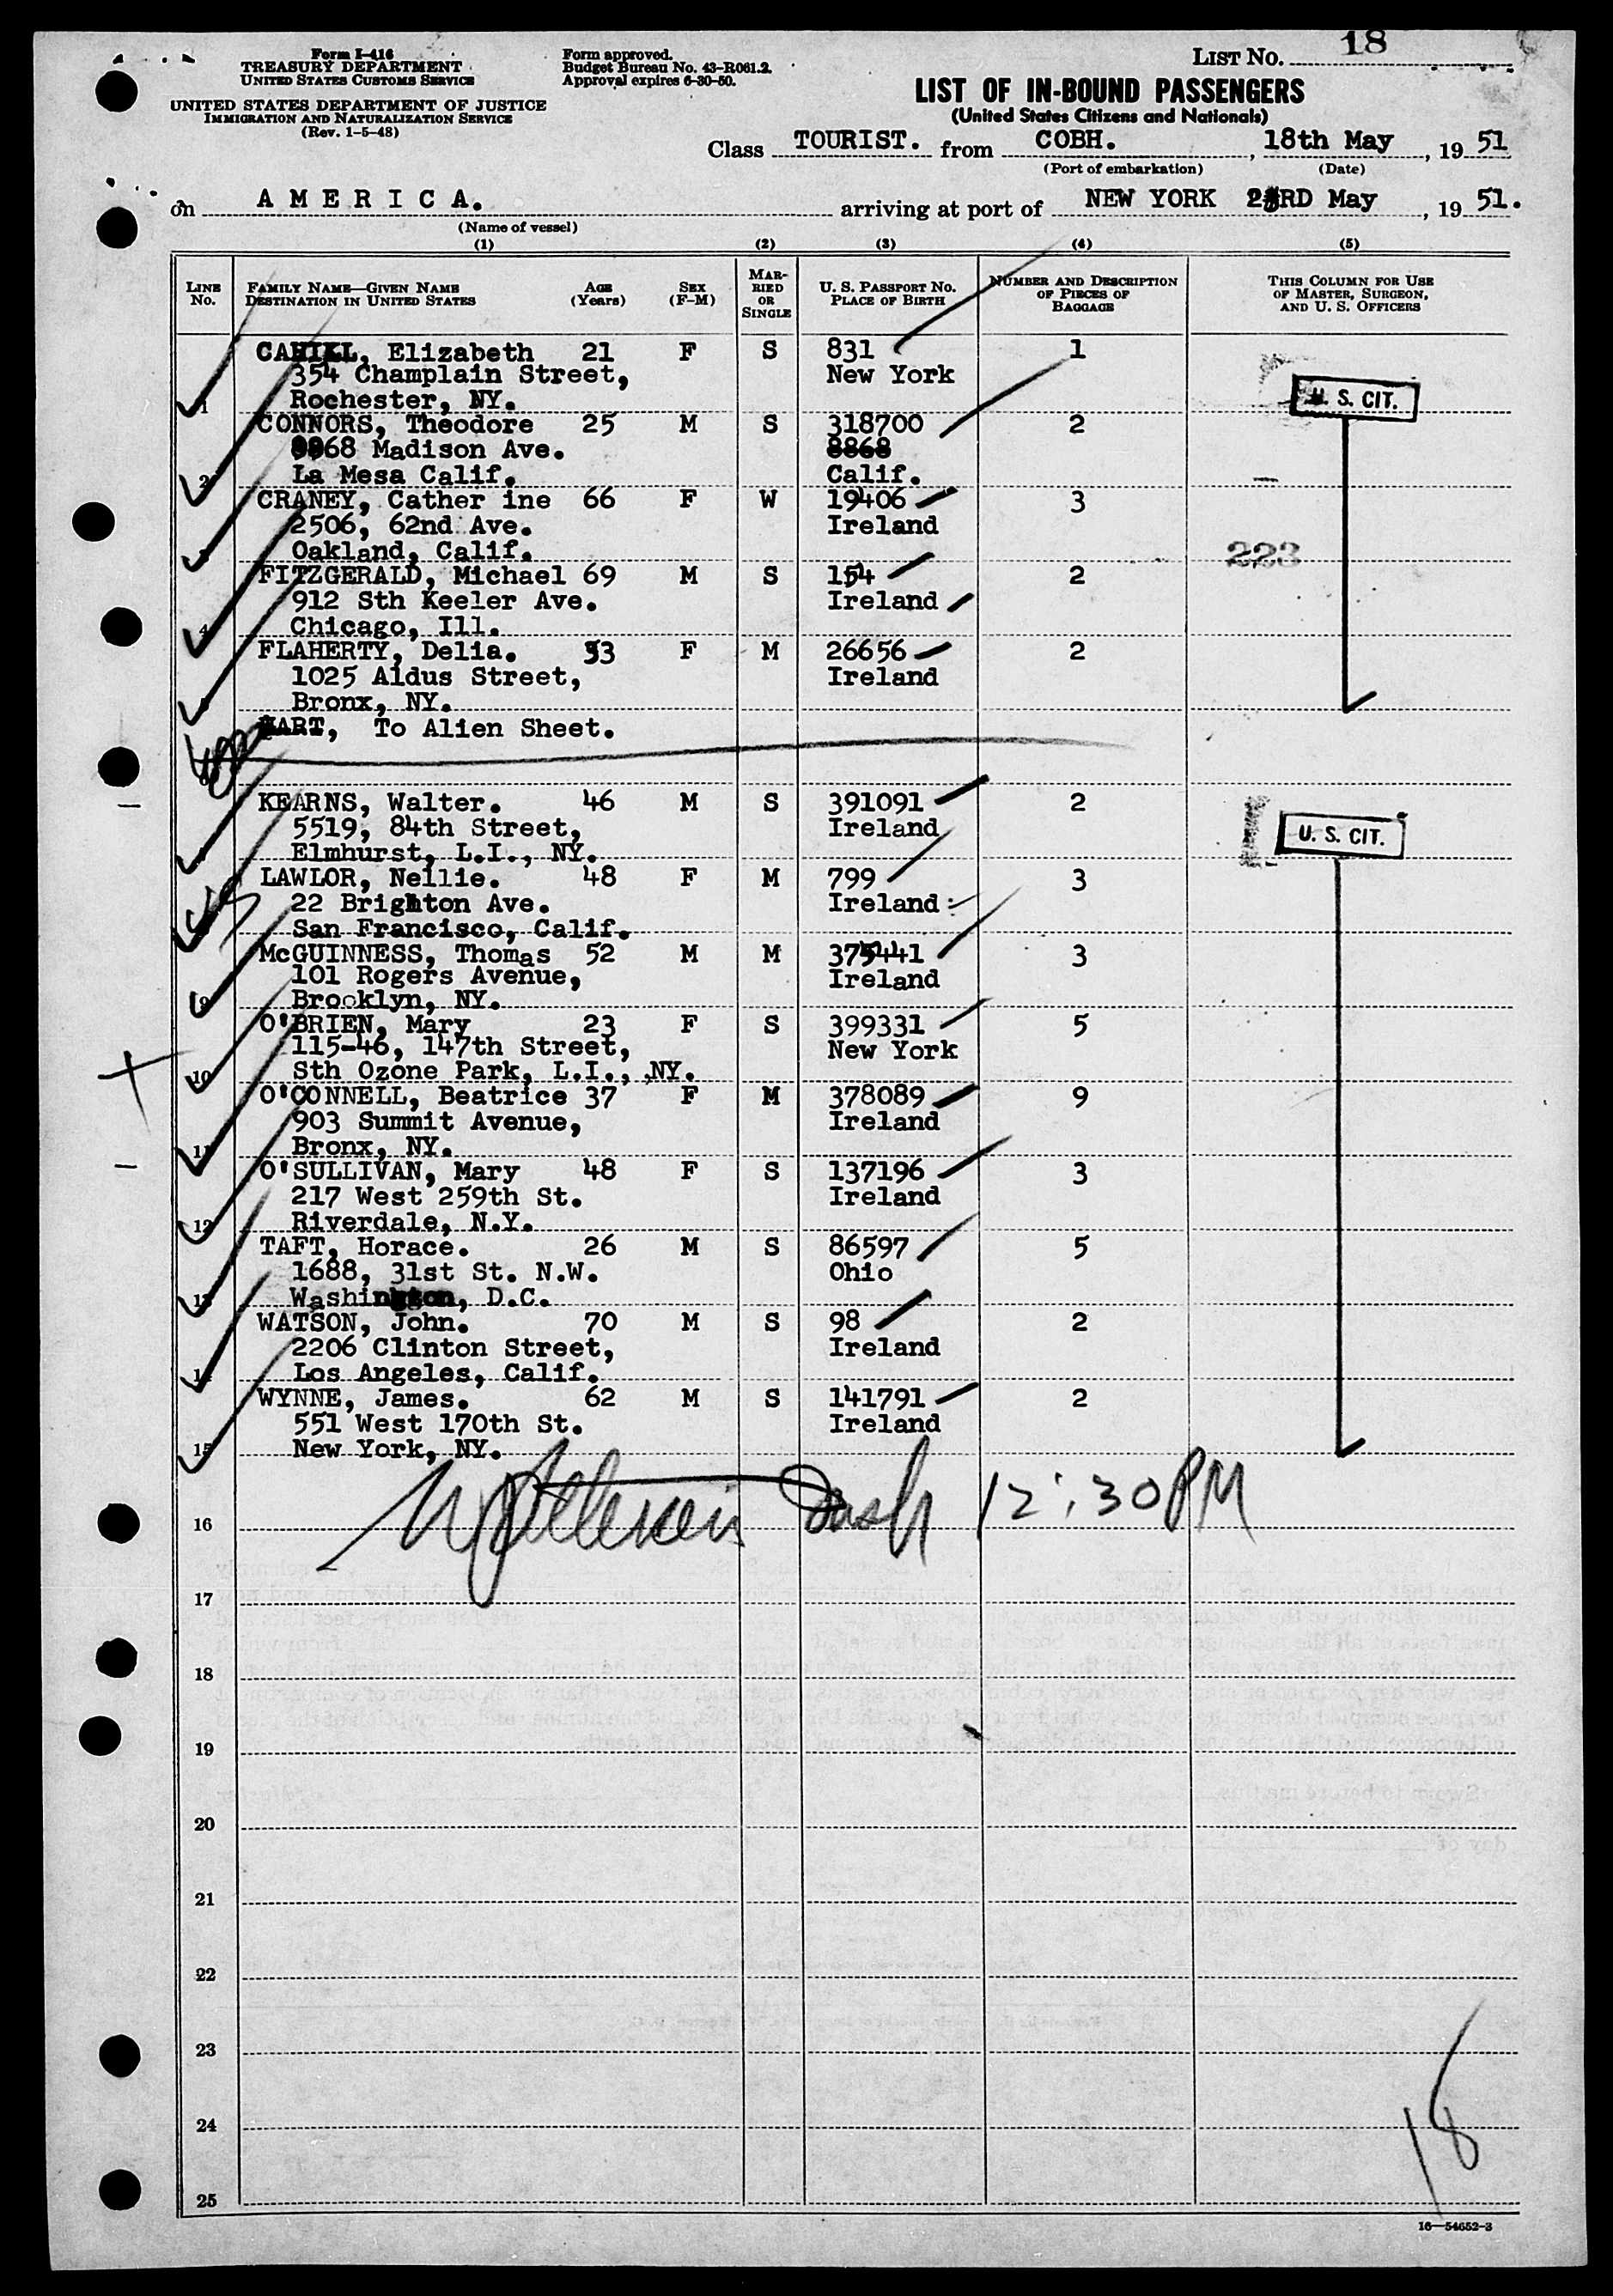 Form I-416
TREASURY DEPARTMENT
UNITED STATES CUSTOMS SERVICE
UNITED STATES DEPARTMENT OF JUSTICE
IMMIGRATION AND NATURALIZATION SERVICE
(Rev. 1-5-48)
Form approved.
Budget Bureau No. 43-R061.2.
Approval expires 6-30-50.
LIST NO. 18
LIST OF IN-BOUND PASSENGERS
(United States Citizens and Nationals)
Class TOURIST. from COBH. , 18th May , 19 51
(Port of embarkation) (Date)
on A M E R I C A. arriving at port of NEW YORK 23RD May , 19 51.
(Name of vessel)
(1) (2) (3) (4) (5)
LINE NO. FAMILY NAME—GIVEN NAME DESTINATION IN UNITED STATES AGE (YEARS) SEX (F-M) MARRIED OR SINGLE U. S. PASSPORT NO. PLACE OF BIRTH NUMBER AND DESCRIPTION OF PIECES OF BAGGAGE THIS COLUMN FOR USE OF MASTER, SURGEON, AND U. S. OFFICERS
CAHILL, Elizabeth 21 F S 831 1
354 Champlain Street, New York
1 Rochester, NY. U. S. CIT.
CONNORS, Theodore 25 M S 318700 2
8868 Madison Ave. 8868
2 La Mesa Calif. Calif.
CRANEY, Cather ine 66 F W 19406 3
2506, 62nd Ave. Ireland
3 Oakland, Calif. 223
FITZGERALD, Michael 69 M S 154 2
912 Sth Keeler Ave. Ireland
4 Chicago, Ill.
FLAHERTY, Delia. 53 F M 26656 2
1025 Aldus Street, Ireland
5 Bronx, NY.
HART, To Alien Sheet.
6
KEARNS, Walter. 46 M S 391091 2
5519, 84th Street, Ireland U. S. CIT.
7 Elmhurst, L.I., NY.
LAWLOR, Nellie. 48 F M 799 3
22 Brighton Ave. Ireland
San Francisco, Calif.
McGUINNESS, Thomas 52 M M 375441 3
101 Rogers Avenue, Ireland
9 Brooklyn, NY.
O'BRIEN, Mary 23 F S 399331 5
115-46, 147th Street, New York
10 Sth Ozone Park, L.I., ,NY.
O'CONNELL, Beatrice 37 F M 378089 9
903 Summit Avenue, Ireland
11 Bronx, NY.
O'SULLIVAN, Mary 48 F S 137196 3
217 West 259th St. Ireland
12 Riverdale, N.Y.
TAFT, Horace. 26 M S 86597 5
1688, 31st St. N.W. Ohio
13 Washington, D.C.
WATSON, John. 70 M S 98 2
2206 Clinton Street, Ireland
14 Los Angeles, Calif.
WYNNE, James. 62 M S 141791 2
551 West 170th St. Ireland
15 New York, NY.
12:30 PM
16
17
18
19
20
21
22
23
24
25
18
16—54652-3